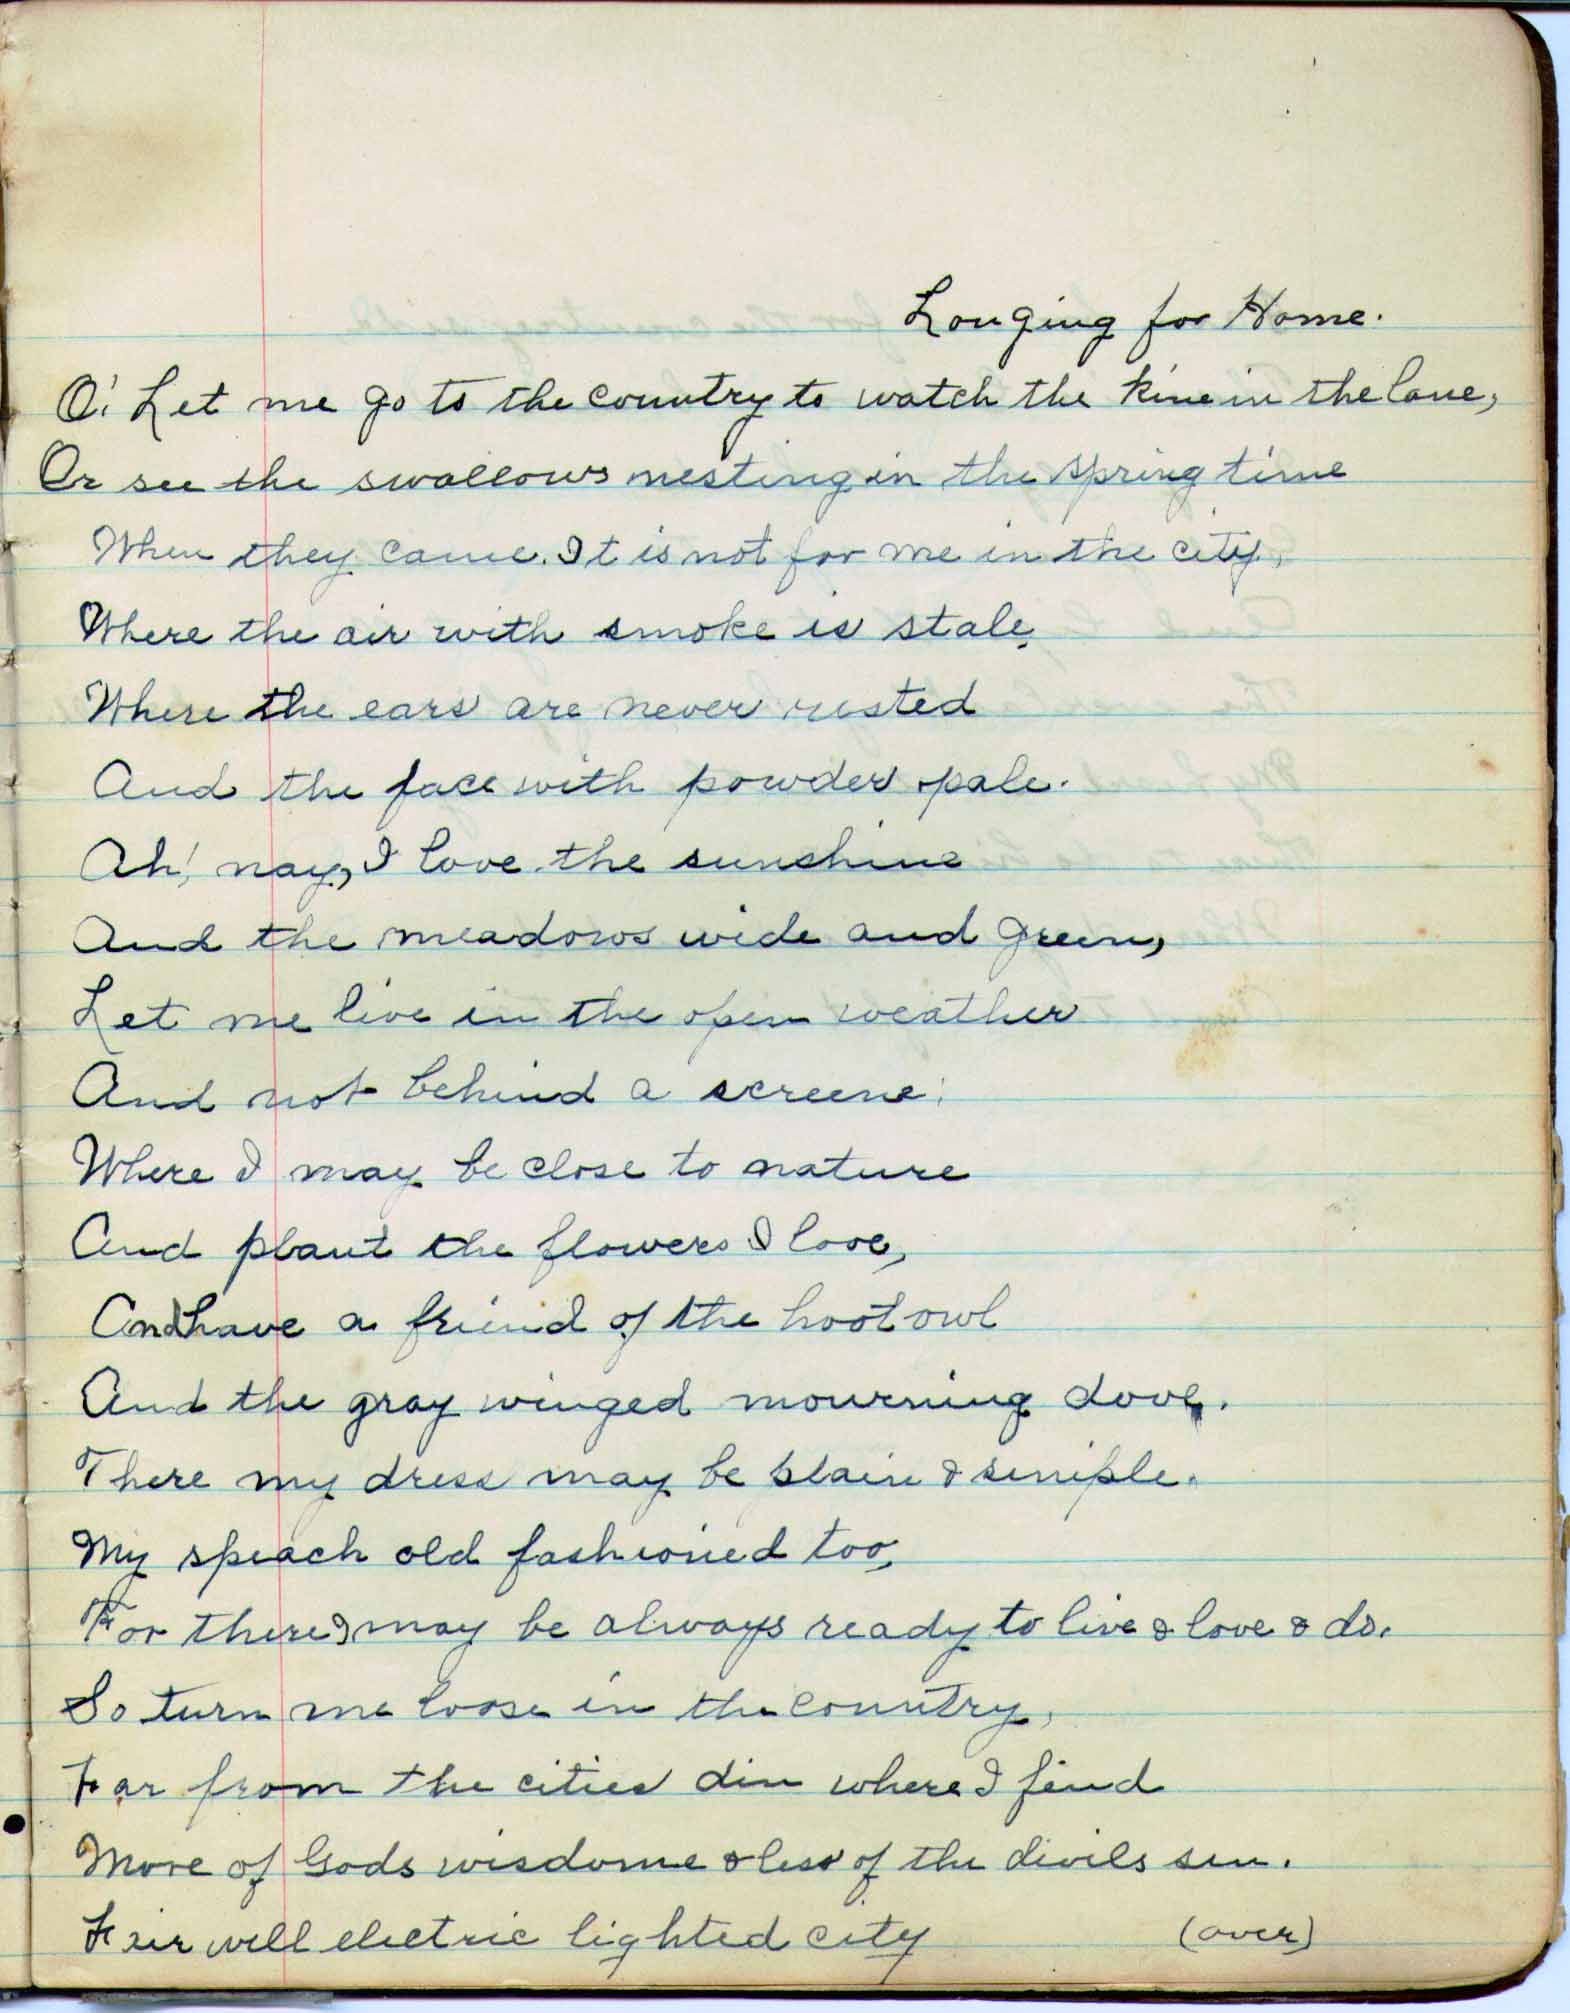 Longing for Home.
O! Let me go to the country to watch the kine in the lane,
Or see the swallows nesting in the spring time
When they came. It is not for me in the city,
Where the air with smoke is stale,
Where the ears are never rested
And the face with powder pale.
Ah! nay, I love the sunshine
And the meadows wide and green,
Let me live in the open weather
And not behind a screene;
Where I may be close to nature
And plant the flowers I love,
And have a friend of the hoot owl
And the gray winged mourning dove.
There my dress may be plain & simple.
My speach old fashioned too,
For there I may be always ready to live & love & do.
So turn me loose in the country,
Far from the cities din where I find
More of Gods wisdome & less of the divils sin.
Fair well electric lighted city (over)